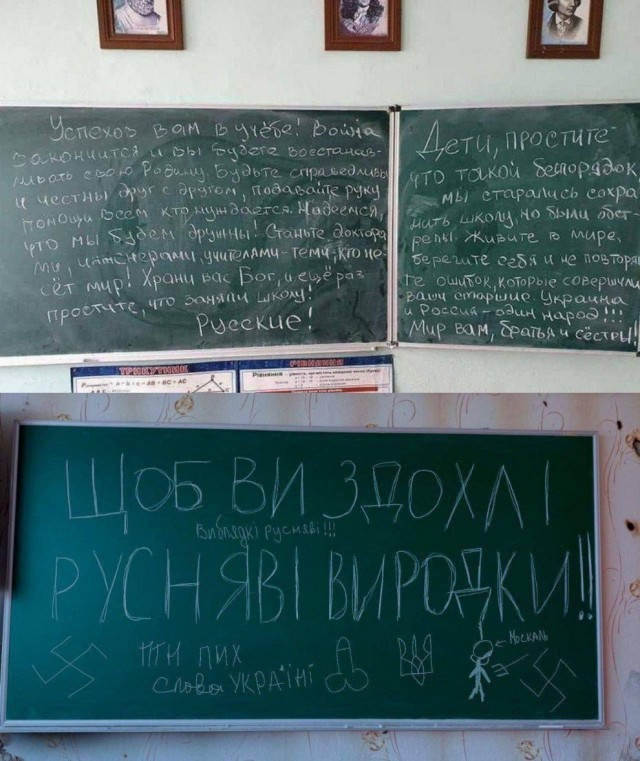 Успехов вам в учёбе! Война
закончится и вы будете восстанав-
ливать свою Родину. Будьте справедливы
и честны друг с другом, подавайте руку
помощи всем кто нуждается. Надеемся,
что мы будем дружны! Станьте доктора-
ми, инженерами, учителями - теми, кто не-
сёт мир! Храни вас Бог, и ещё раз
простите, что заняли школу!
Русские!
Дети, простите
что такой беспорядок,
мы старались сохра-
нить школу, но были обст-
релы. Живите в мире,
берегите себя и не повторяй
те ошибок, которые совершили
ваши старшие. Украина
и Россия - один народ!!!
Мир вам, братья и сёстры!!
ТРИКУТНИК
РІВНЯННЯ
ЩОБ ВИ ЗДОХЛІ
Виблядкі русняві!!!
РУСНЯВІ ВИРОДКИ!!
ПТН ПИХ
слова УКРАЇНІ
МОСКАЛЬ